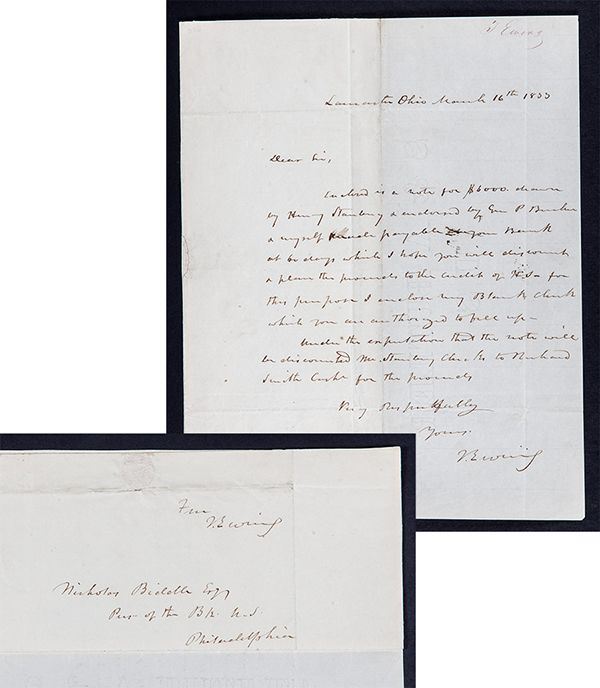 T Ewing
Lancaster Ohio March 16th 1833
Dear Sir,
Enclosed is a note for $6000. drawn
by Henry Stanbery & endorsed by Geo P
& myself payable your Bank
at 60 days which I hope you will discount
& place the proceeds to the credit of H S – for
this purpose I enclose my Blank check
which you are authorized to fill up –
Under the expectation that the note will
be discounted Mr. Stanbery checks to
Smith Cashr for the proceeds
Very Respectfully
Yours.
T. Ewing
From
T. Ewing
Nicholas Biddle Esqr
Pres. of the Bk. U.S.
Philadelphia